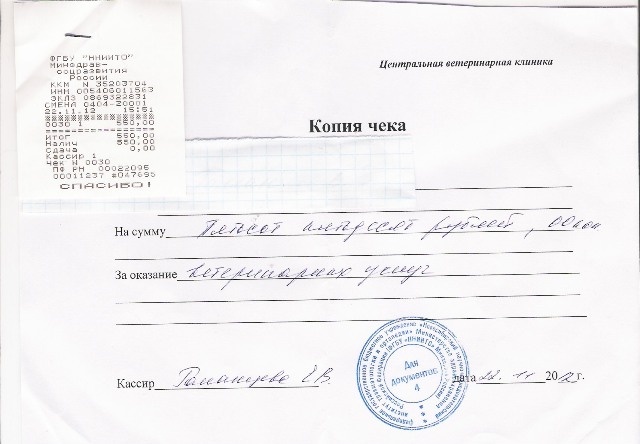 ФГБУ "ННИИТО"
Минздрав-
соцразвития
России
ККМ N 35203704
ИНН 005406011563
ЭКЛЗ 0869322831
СМЕНА 0404-20001
22.11.12 15:51
0030 1 550,00
ИТОГ 550,00
Налич 550,00
Сдача 0,00
Кассир 1
Чек N 0030
ПФ РН 00022095
00011237 #047695
СПАСИБО!
Центральная ветеринарная клиника
Копия чека
На сумму Пятьсот пятьдесят рублей, 00 коп
За оказание ветеринарных услуг
Для
документов
4
Кассир Е.В. дата 22.11 2012г.